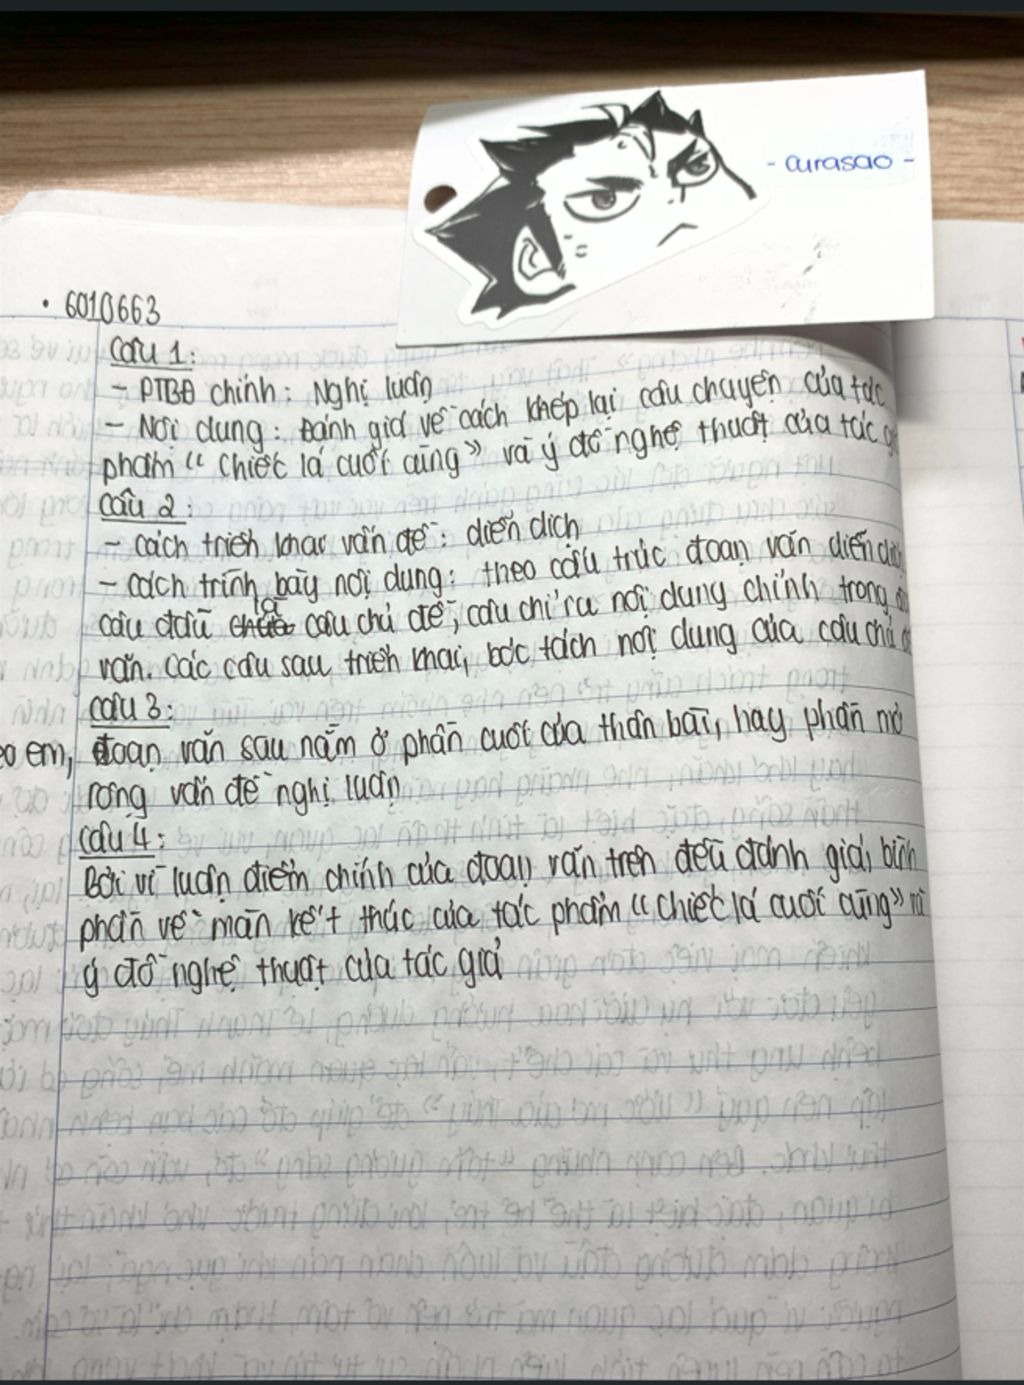 - curasao -
• 6010663
Câu 1:
- PTBĐ chính: Nghị luận
- Nội dung: Đánh giá về cách khép lại câu chuyện của tác
phẩm "Chiếc lá cuối cùng" và ý đồ nghệ thuật của tác giả
Câu 2:
- Cách triển khai vấn đề: diễn dịch
- Cách trình bày nội dung: theo cấu trúc đoạn văn diễn dịch
câu đầu là câu chủ đề, câu chỉ ra nội dung chính trong
văn. Các câu sau triển khai, bóc tách nội dung của câu chủ
Câu 3:
em, đoạn văn sau nằm ở phần cuối của thân bài, hay phần mở
rộng vấn đề nghị luận
Câu 4:
Bởi vì luận điểm chính của đoạn văn trên đều đánh giá, bình
phẩn về màn kết thúc của tác phẩm "Chiếc lá cuối cùng" và
ý đồ nghệ thuật của tác giả